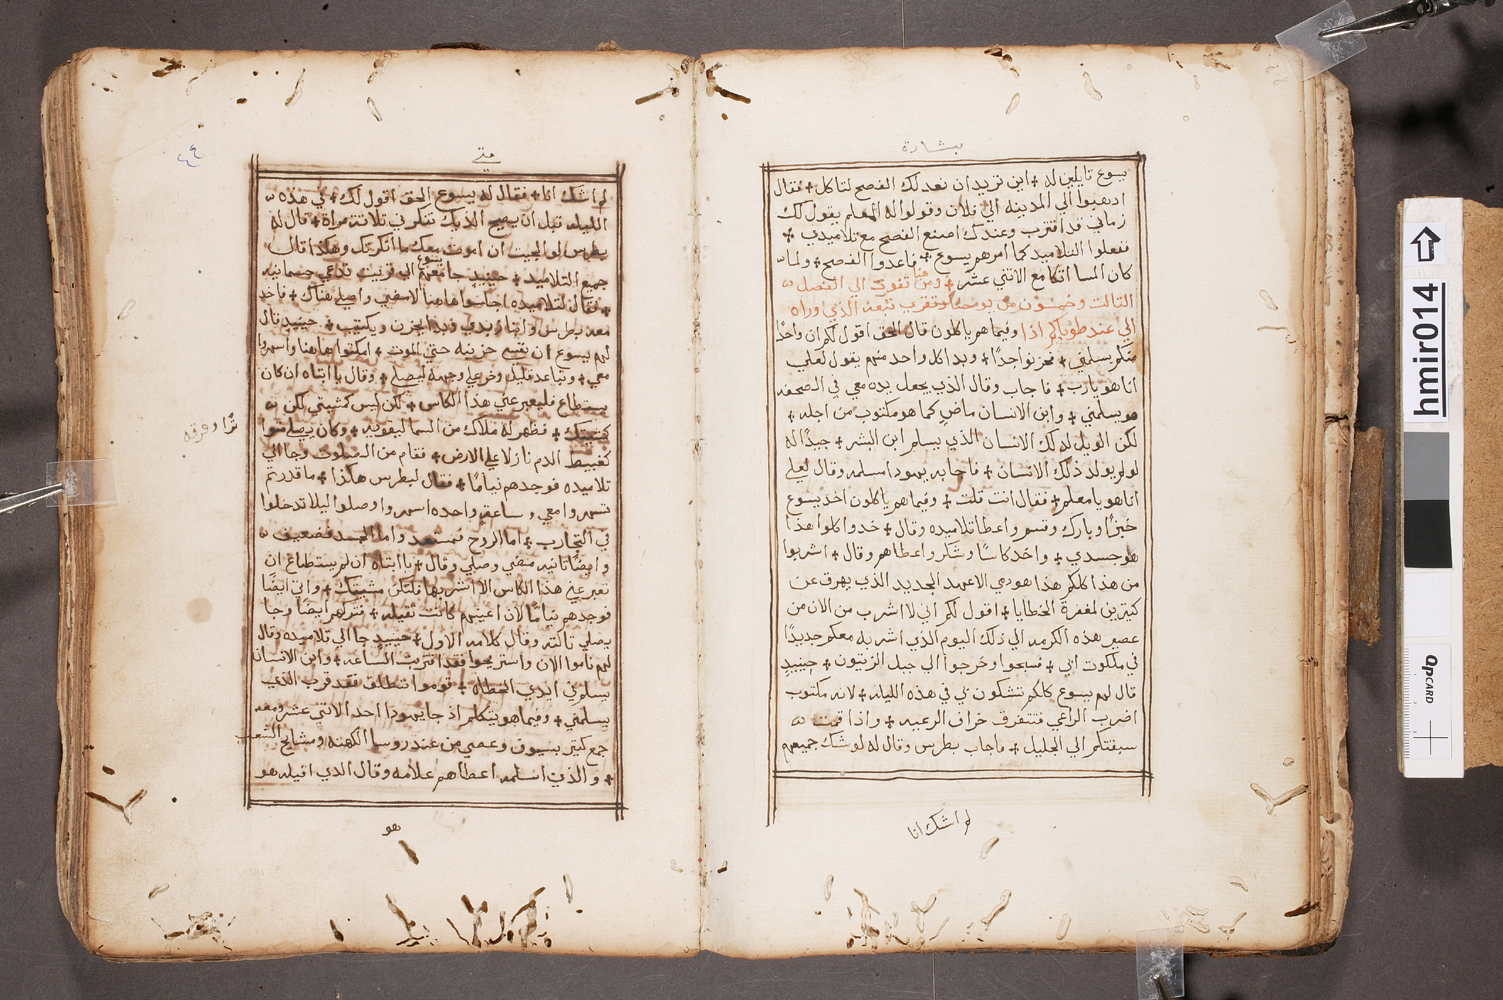 بشارة
يسوع قايلين له + اين تريد ان نعد لك الفصح لتاكل + فقال
ادهبوا الي المدينه الي فلان وقولوا له المعلم يقول لك
زماني قد اقترب وعندك اصنع الفصح مع تلاميدي +
ففعلوا التلاميد كما امرهم يسوع + فاعدوا الفصح + ولما
كان المسا اتكا مع الاتني عشر + ومن هنا تقوى الى الفصل
التالت وخمسون من يوحنا وتقرب تبعه الذي وراه
الي عند طوباكم اذا وفيما هم ياكلون قال الحق اقول لكم ان واحدًا
منكم يسلمني + فحزنوا جدًا + وبدا كل واحد منهم يقول لعلي
انا هو يارب + فاجاب وقال الذي يجعل يده معي في الصحفه
هو يسلمني + وابن الانسان ماضٍ كما هو مكتوب من اجله +
لكن الويل لدلك الانسان الذي يسلم ابن البشر + جيدًا له
لو لم يولد ذلك الانسان + فاجابه يهودا مسلمه وقال لعلي
انا هو يا معلم + فقال انت قلت + وفيما هم ياكلون اخد يسوع
خبزًا وبارك وقسم واعطا تلاميده وقال + خدوا كلوا هذا
هو جسدي + واخد كاسًا وشكر واعطاهم وقال + اشربوا
من هذا كلكم هذا هو دمي الاعهد الجديد الذي يهرق عن
كتيرين لمغفرة الخطايا + اقول لكم اني لا اشرب من الان من
عصير هذه الكرمه الي ذلك اليوم الذي اشربه معكم جديدًا
في ملكوت ابي + فسبحوا وخرجوا الي جبل الزيتون + حينيدٍ
قال لهم يسوع كلكم تشكون بي في هذه الليله + لانه مكتوب
اضرب الراعي فتتفرق خراف الرعيه + واذا قمت
سبقتكم الى الجليل + فاجاب بطرس وقال له لو شك جميعهم
لم اشك انا
متي
٤٤
لم اشك انا + فقال له يسوع الحق اقول لك + في هذه
الليله قبل ان يصيح الديك تنكرني تلاتة مراة + قال له
بطرس لو الجيت ان اموت معك ما انكرتك وهكذا قال
جميع التلاميد + حينيدٍ جا معهم يسوع الي قريت تدعي جسمانيه
+ فقال لتلاميده اجلسوا هاهنا لامضي واصلي هناك + فاخد
معه بطرس وابنا زبدي وبدا يحزن ويكتيب + حينيدٍ قال
لهم يسوع ان نفسي حزينه حتي الموت + امكتوا هاهنا واسهروا
معي + وتباعد قليل وخر علي وجهه ليصلي + وقال يا ابتاه ان كان
يستطاع فليعبر عني هدا الكاس + لكن ليس كمشيتي لكن
كمشيتك + فظهر له ملاك من السما ليقويه + وكان يصلي متوا
كعبيط الدم نازلا علي الارض + فقام من الصلوت وجا الي
تلاميده فوجدهم نيامًا + فقال لبطرس هكذا + ما قدرتم
تسهروا معي وساعةٍ واحده اسهروا وصلوا ليلا تدخلوا
في التجارب + اما الروح فمستعد واما الجسد فضعيف
وايضًا تانيه مضي وصلي وقال + يا ابتاه ان لم يستطاع ان
تعبر عني هذا الكاس الا اشربها فلتكن مشيتك + واتي ايضًا
فوجدهم نيامًا لان اعينهم كانت تقيله + فتركهم ايضًا وجا
يصلي تالته وقال كلامه الاول + حينيدٍ جا الي تلاميده وقال
لهم ناموا الان واستريحوا فقد اقتربت الساعه + وابن الانسان
يسلم في ايدي الخطاه + قوموا ننطلق فقد قرب الذي
يسلمني + وفيما هو يتكلم اذ جا يهودا احد الاتني عشر ومعه
جمع كتير بسيوف وعصي من عند روسا الكهنه ومشايخ الشعب
+ والذي اسلمه اعطاهم علامه وقال الدي اقبله هو
هو
hmir014
QP CARD